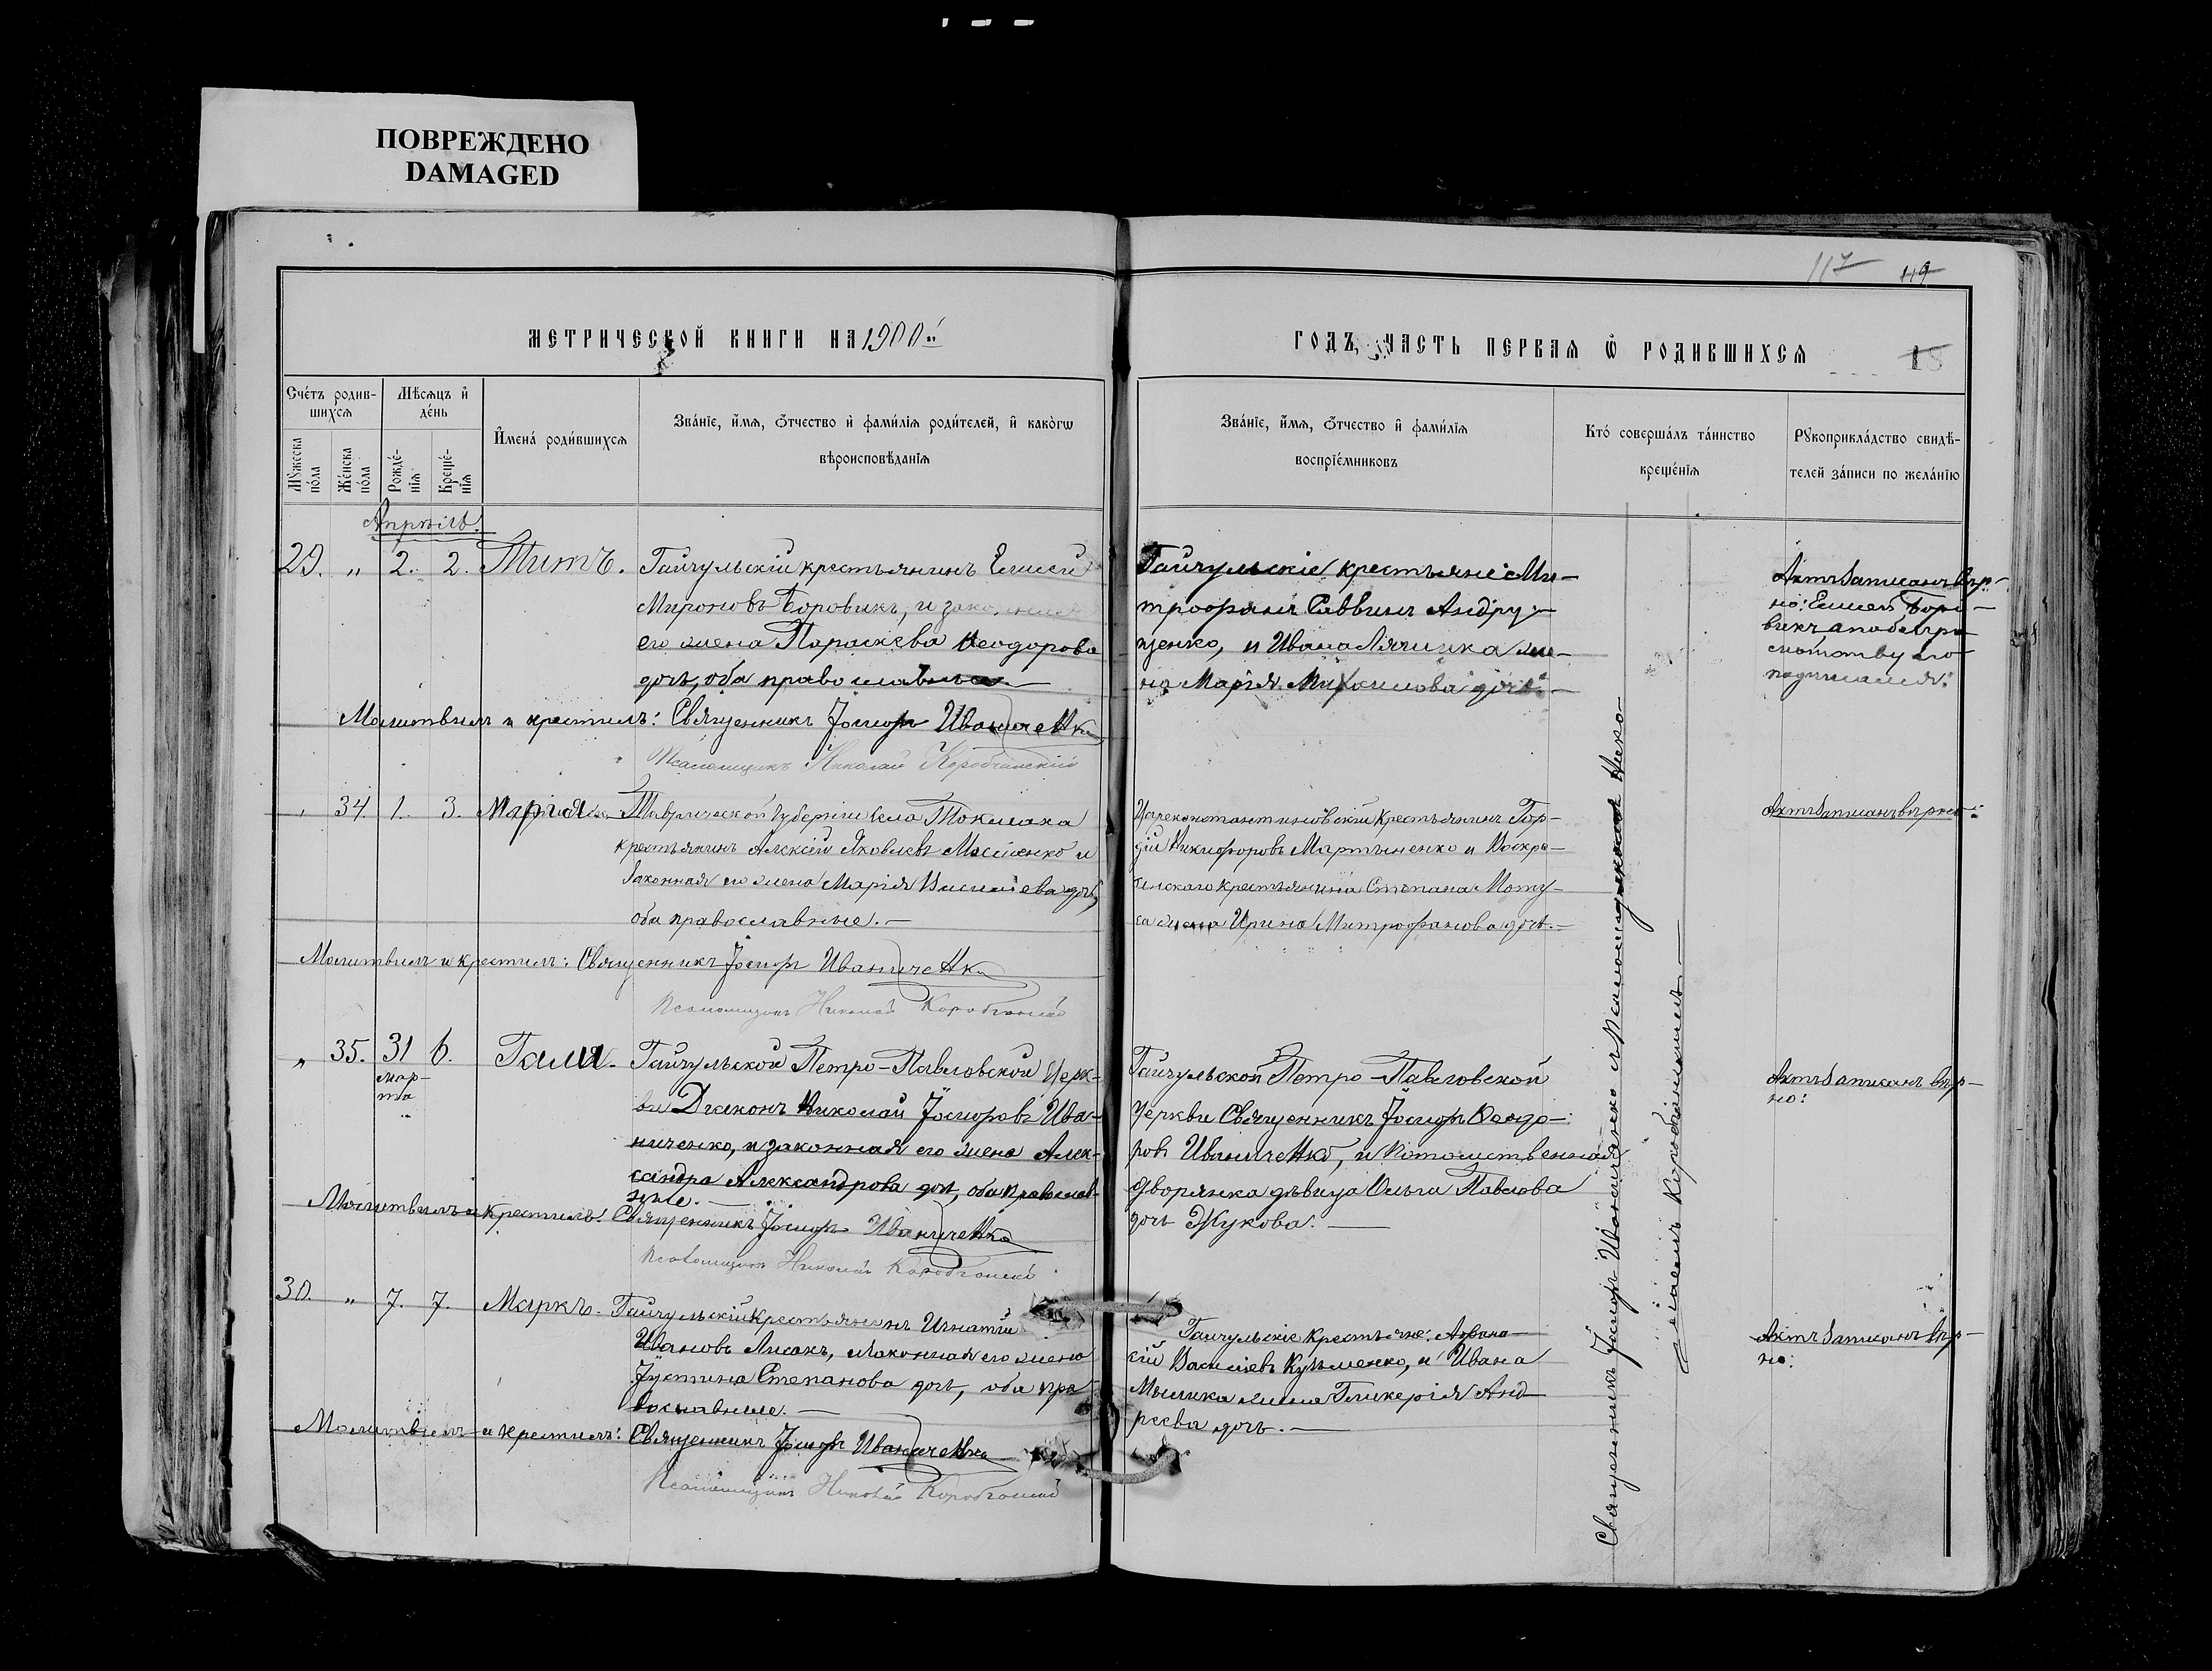 ПОВРЕЖДЕНО
DAMAGED
117 119
МЕТРИЧЕСКОЙ КНИГИ НА 1900й
ГОДЪ, ЧАСТЬ ПЕРВАЯ Ѿ РОДИВШИХСЯ
18
Сче́тъ родив-
шихсѧ
Мѣсѧцъ и҆
де́нь
И҆мена́ роди́вшихсѧ
Зва́нїе, и҆́мѧ, ѻ҆́тчество и҆ фами́лїѧ роди́телей, и҆ како́гѡ
вѣроисповѣ́данїѧ
Мꙋ́жеска
по́ла
Же́нска
по́ла
Рожде́-
нїѧ
Креще́-
нїѧ
Зва́нїе, и҆́мѧ, ѻ҆́тчество и҆ фами́лїѧ
воспрїе́мниковъ
Кто́ соверша́лъ та́инство
креще́нїѧ
Рꙋкоприкла́дство свидѣ́-
телей за́писи по жела́нїю
Апрѣль.
29. " 2. 2. Титъ. Гайчульскій крестьянинъ Елисей
Мироновъ Боровикъ, и законная
его жена Параскева Ѳеодорова
дочь, оба православные.
Молитвилъ и крестилъ: Священникъ Іосифъ Иваниченко
Псаломщикъ Николай Коробчанскій
Гайчульскіе крестьяне: Ми-
трофанъ Саввинъ Андру-
щенко, и Ивана Лячшка же-
на Марія Михаилова дочь.
Актъ записанъ вѣр-
но: Елисей Боро-
викъ, а по безгра-
мотству его
подписался:
" 34. 1. 3. Марія. Таврической губерніи села Токмака
крестьянинъ Алексій Яковлевъ Мсиенко и
законная его жена Марія Василіева дочь,
оба православные.
Молитвилъ и крестилъ: Священникъ Іосифъ Иваниченко
Псаломщикъ Николай Коробчанскій
Цареконстантиновскій крестьянинъ Гор-
дій Никифоровъ Мартыненко и Воскре-
сенскаго крестьянина Стефана Мату-
са жена Ирина Митрофанова дочь.
Актъ записанъ вѣрно:
" 35. 31 6. Галя. Гайчульской Петро-Павловской Церк-
мар-
та
ви Діаконъ Николай Іосифовъ Ива-
ниченко, и законная его жена Алек-
сандра Александрова дочь, оба православ-
ные.
Молитвилъ и крестилъ: Священникъ Іосифъ Иваниченко
Псаломщикъ Николай Коробчанскій
Гайчульской Петро-Павловской
церкви Священникъ Іосифъ Ѳеодо-
ровъ Иваниченко, и потомственная
дворянка дѣвица Ольга Павлова
дочь Жукова.
Актъ записанъ вѣр-
но:
30. " 7. 7. Маркъ. Гайчульскій крестьянинъ Игнатій
Ивановъ Лисакъ, и законная его жена
Іустина Степанова дочь, оба пра-
вославные.
Молитвилъ и крестилъ: Священникъ Іосифъ Иваниченко
Псаломщикъ Николай Коробчанскій
Гайчульскіе крестьяне: Аѳана-
сій Василіевъ Кузьменко, и Ивана
Мышка жена Гликерія Анд-
реева дочь.
Актъ записанъ вѣр-
но:
Священникъ Іосифъ Иваниченко съ Псаломщикомъ Нико-
лаемъ Коробчанскимъ